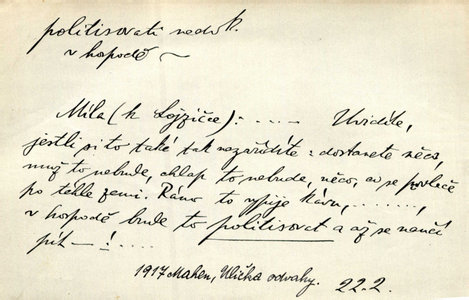 politisovati nedok.
v hospodě ~
Míla (k Lojzičce): . – . – . – Uvidíte,
jestli si to také tak nezařídíte: dostanete něco,
muž to nebude, chlap to nebude, něco, co se povleče
po téhle zemi. Ráno to vypije kávu, . . . . . . . ,
v hospodě bude to politisovat a až se naučí
pít – ! . . . .
1917 Mahen, Ulička odvahy. 22.2.